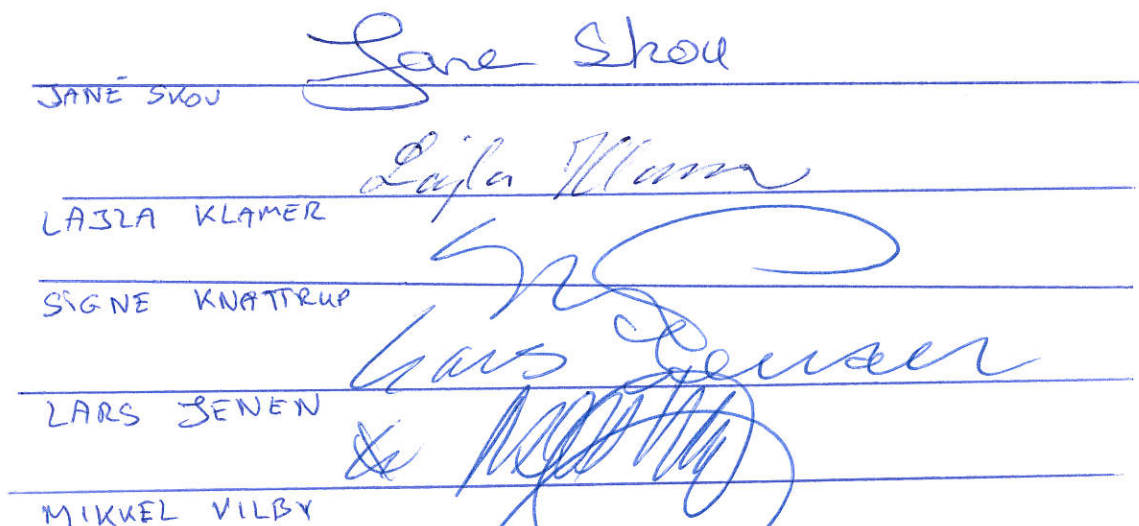 Jane Skou
JANE SKOU
Lajla Klamer
LAJLA KLAMER
SIGNE KNATTRUP
Lars Jensen
LARS JENEN
MIKKEL VILBY